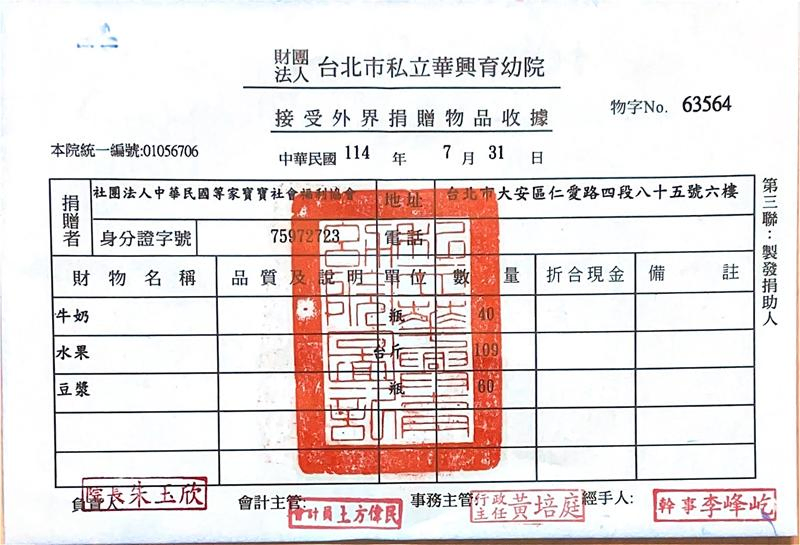 財團法人 台北市私立華興育幼院
接受外界捐贈物品收據
物字No. 63564
本院統一編號:01056706
中華民國 114 年 7 月 31 日
捐贈者 社團法人中華民國等家寶寶社會福利協會 地址 台北市大安區仁愛路四段八十五號六樓
身分證字號 75972723 電話
財物名稱 品質及說明 單位 數量 折合現金 備註
牛奶 瓶 40
水果 台斤 109
豆漿 瓶 60
第三聯:製發捐助人
負責人 院長朱玉欣 會計主管: 會計員方偉民 事務主管 行政主任黃培庭 經手人: 幹事李峰屹